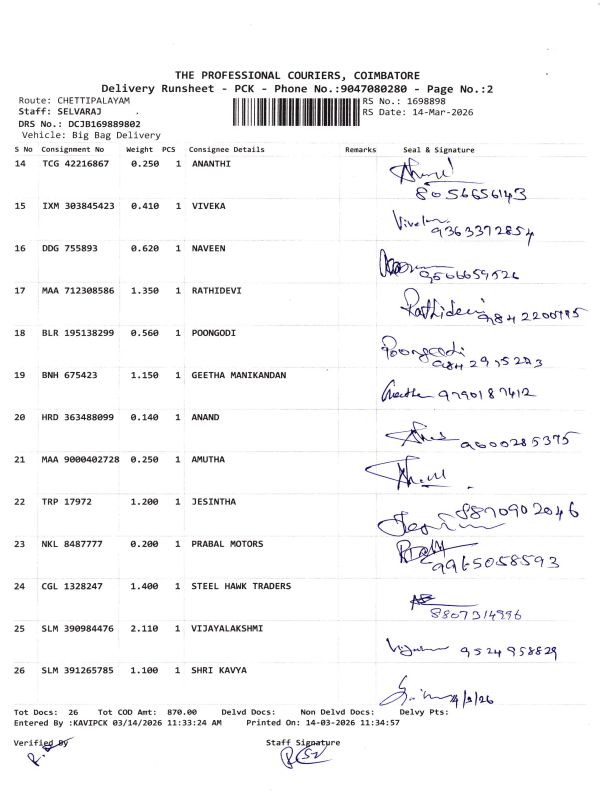 THE PROFESSIONAL COURIERS, COIMBATORE
Delivery Runsheet - PCK - Phone No.:9047080280 - Page No.:2
Route: CHETTIPALAYAM RS No.: 1698898
Staff: SELVARAJ RS Date: 14-Mar-2026
DRS No.: DCJB169889802
Vehicle: Big Bag Delivery
S No Consignment No Weight PCS Consignee Details Remarks Seal & Signature
14 TCG 42216867 0.250 1 ANANTHI
8056656143
15 IXM 303845423 0.410 1 VIVEKA
9363372854
16 DDG 755893 0.620 1 NAVEEN
9566659526
17 MAA 712308586 1.350 1 RATHIDEVI
Rathidevi
18 BLR 195138299 0.560 1 POONGODI
Poongodi
19 BNH 675423 1.150 1 GEETHA MANIKANDAN
Geetha 9790187412
20 HRD 363488099 0.140 1 ANAND
9600285375
21 MAA 9000402728 0.250 1 AMUTHA
22 TRP 17972 1.200 1 JESINTHA
8870902046
23 NKL 8487777 0.200 1 PRABAL MOTORS
9965058593
24 CGL 1328247 1.400 1 STEEL HAWK TRADERS
8807314996
25 SLM 390984476 2.110 1 VIJAYALAKSHMI
9524958829
26 SLM 391265785 1.100 1 SHRI KAVYA
Tot Docs: 26 Tot COD Amt: 870.00 Delvd Docs: Non Delvd Docs: Delvy Pts:
Entered By :KAVIPCK 03/14/2026 11:33:24 AM Printed On: 14-03-2026 11:34:57
Verified By Staff Signature